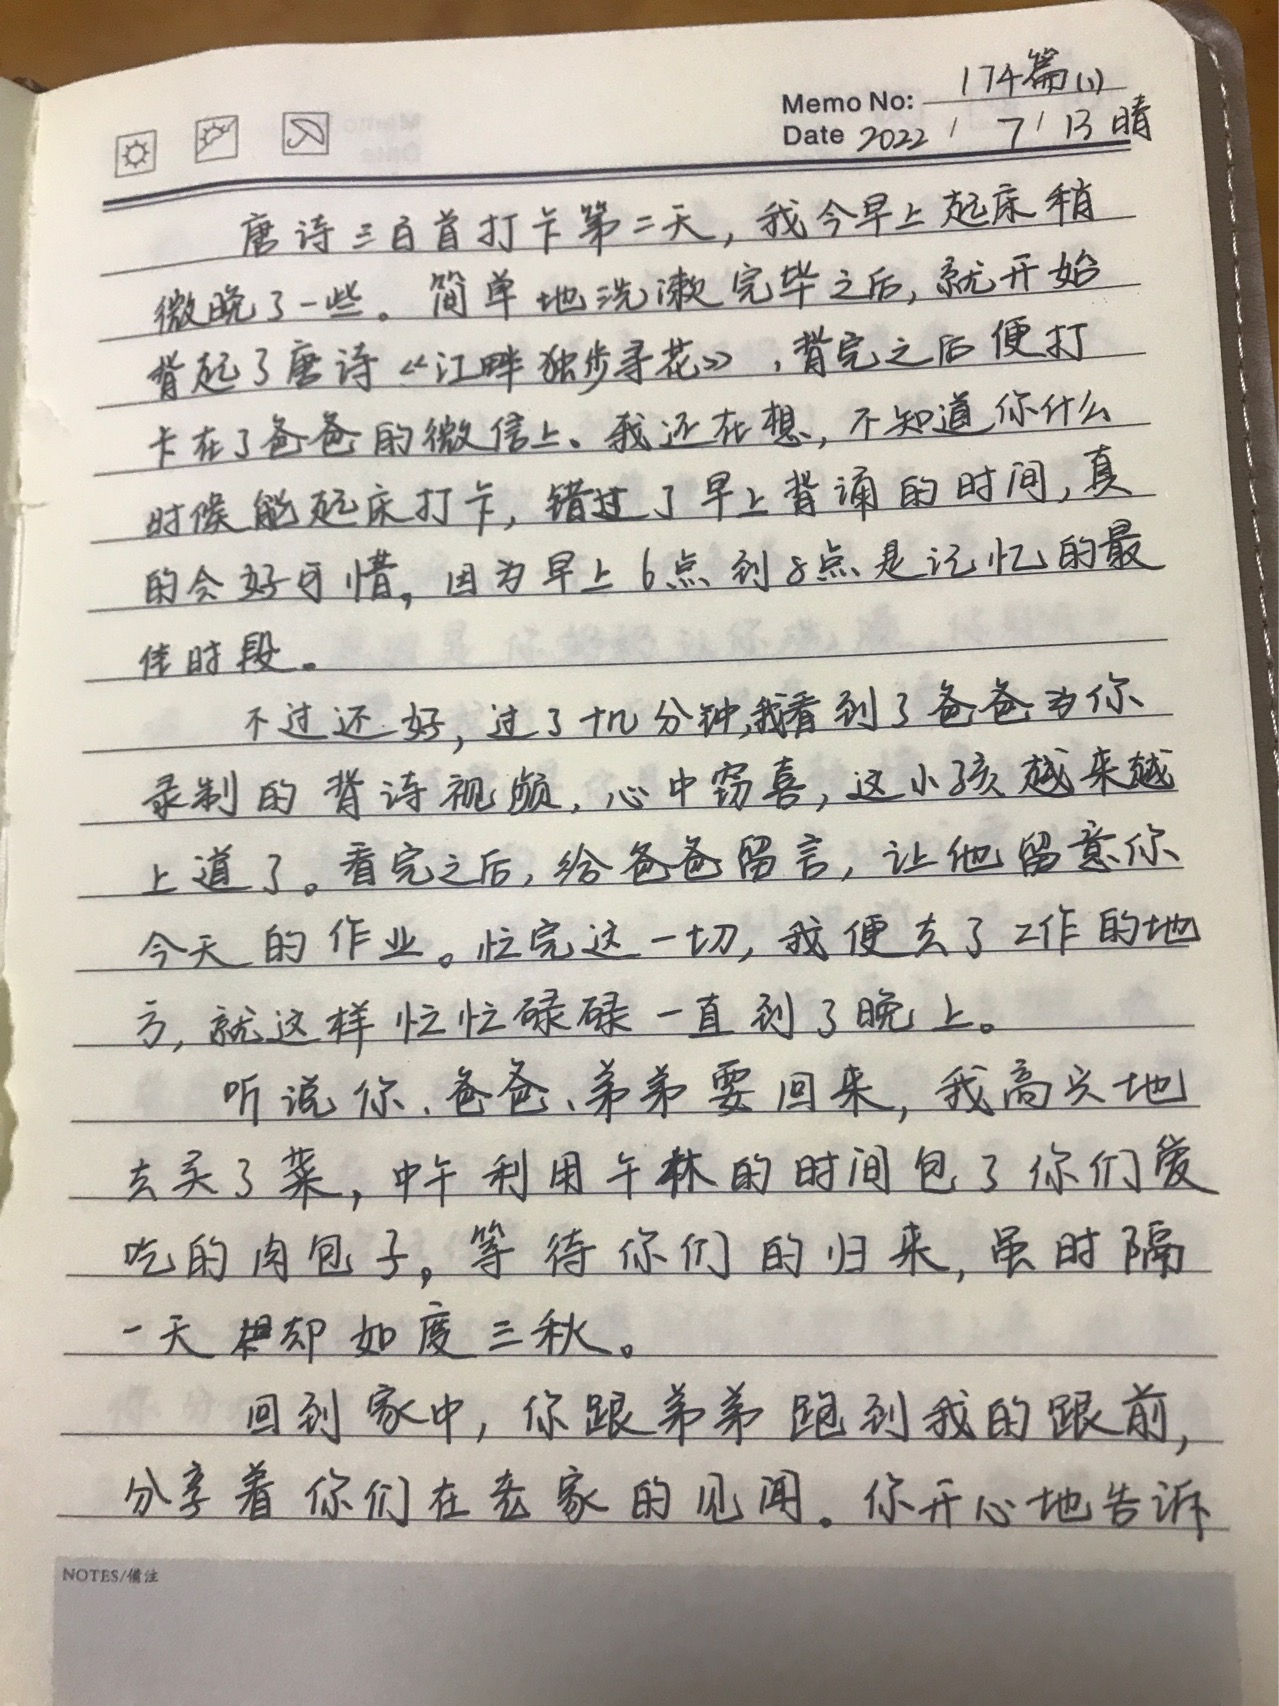 Memo No: 174篇(1)
Date 2022 / 7 / 13 晴
唐诗三百首打卡第二天，我今早上起床稍
微晚了一些。简单地洗漱完毕之后，就开始
背起了唐诗《江畔独步寻花》，背完之后便打
卡在了爸爸的微信上。我还在想，不知道你什么
时候能起床打卡，错过了早上背诵的时间，真
的会好可惜，因为早上6点到8点是记忆的最
佳时段。
不过还好，过了十几分钟，我看到了爸爸为你
录制的背诗视频，心中窃喜，这小孩越来越
上道了。看完之后，给爸爸留言，让他留意你
今天的作业。忙完这一切，我便去了工作的地
方，就这样忙忙碌碌一直到了晚上。
听说你、爸爸、弟弟要回来，我高兴地
去买了菜，中午利用午休的时间包了你们爱
吃的肉包子，等待你们的归来，虽时隔
一天却如度三秋。
回到家中，你跟弟弟跑到我的跟前，
分享着你们在老家的见闻。你开心地告诉
NOTES/備注